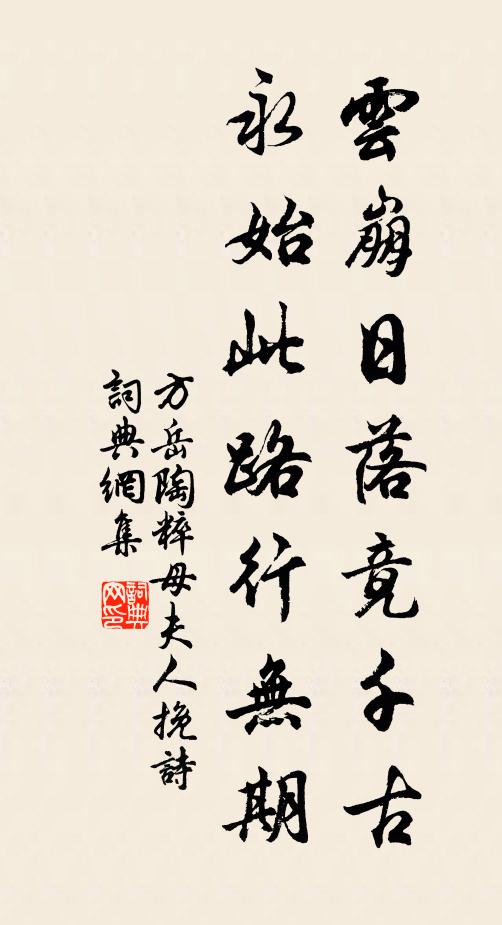 雲崩日落竟千古
永始此路行無期
方岳陶粹母夫人挽詩
詞典網集
詞典網印